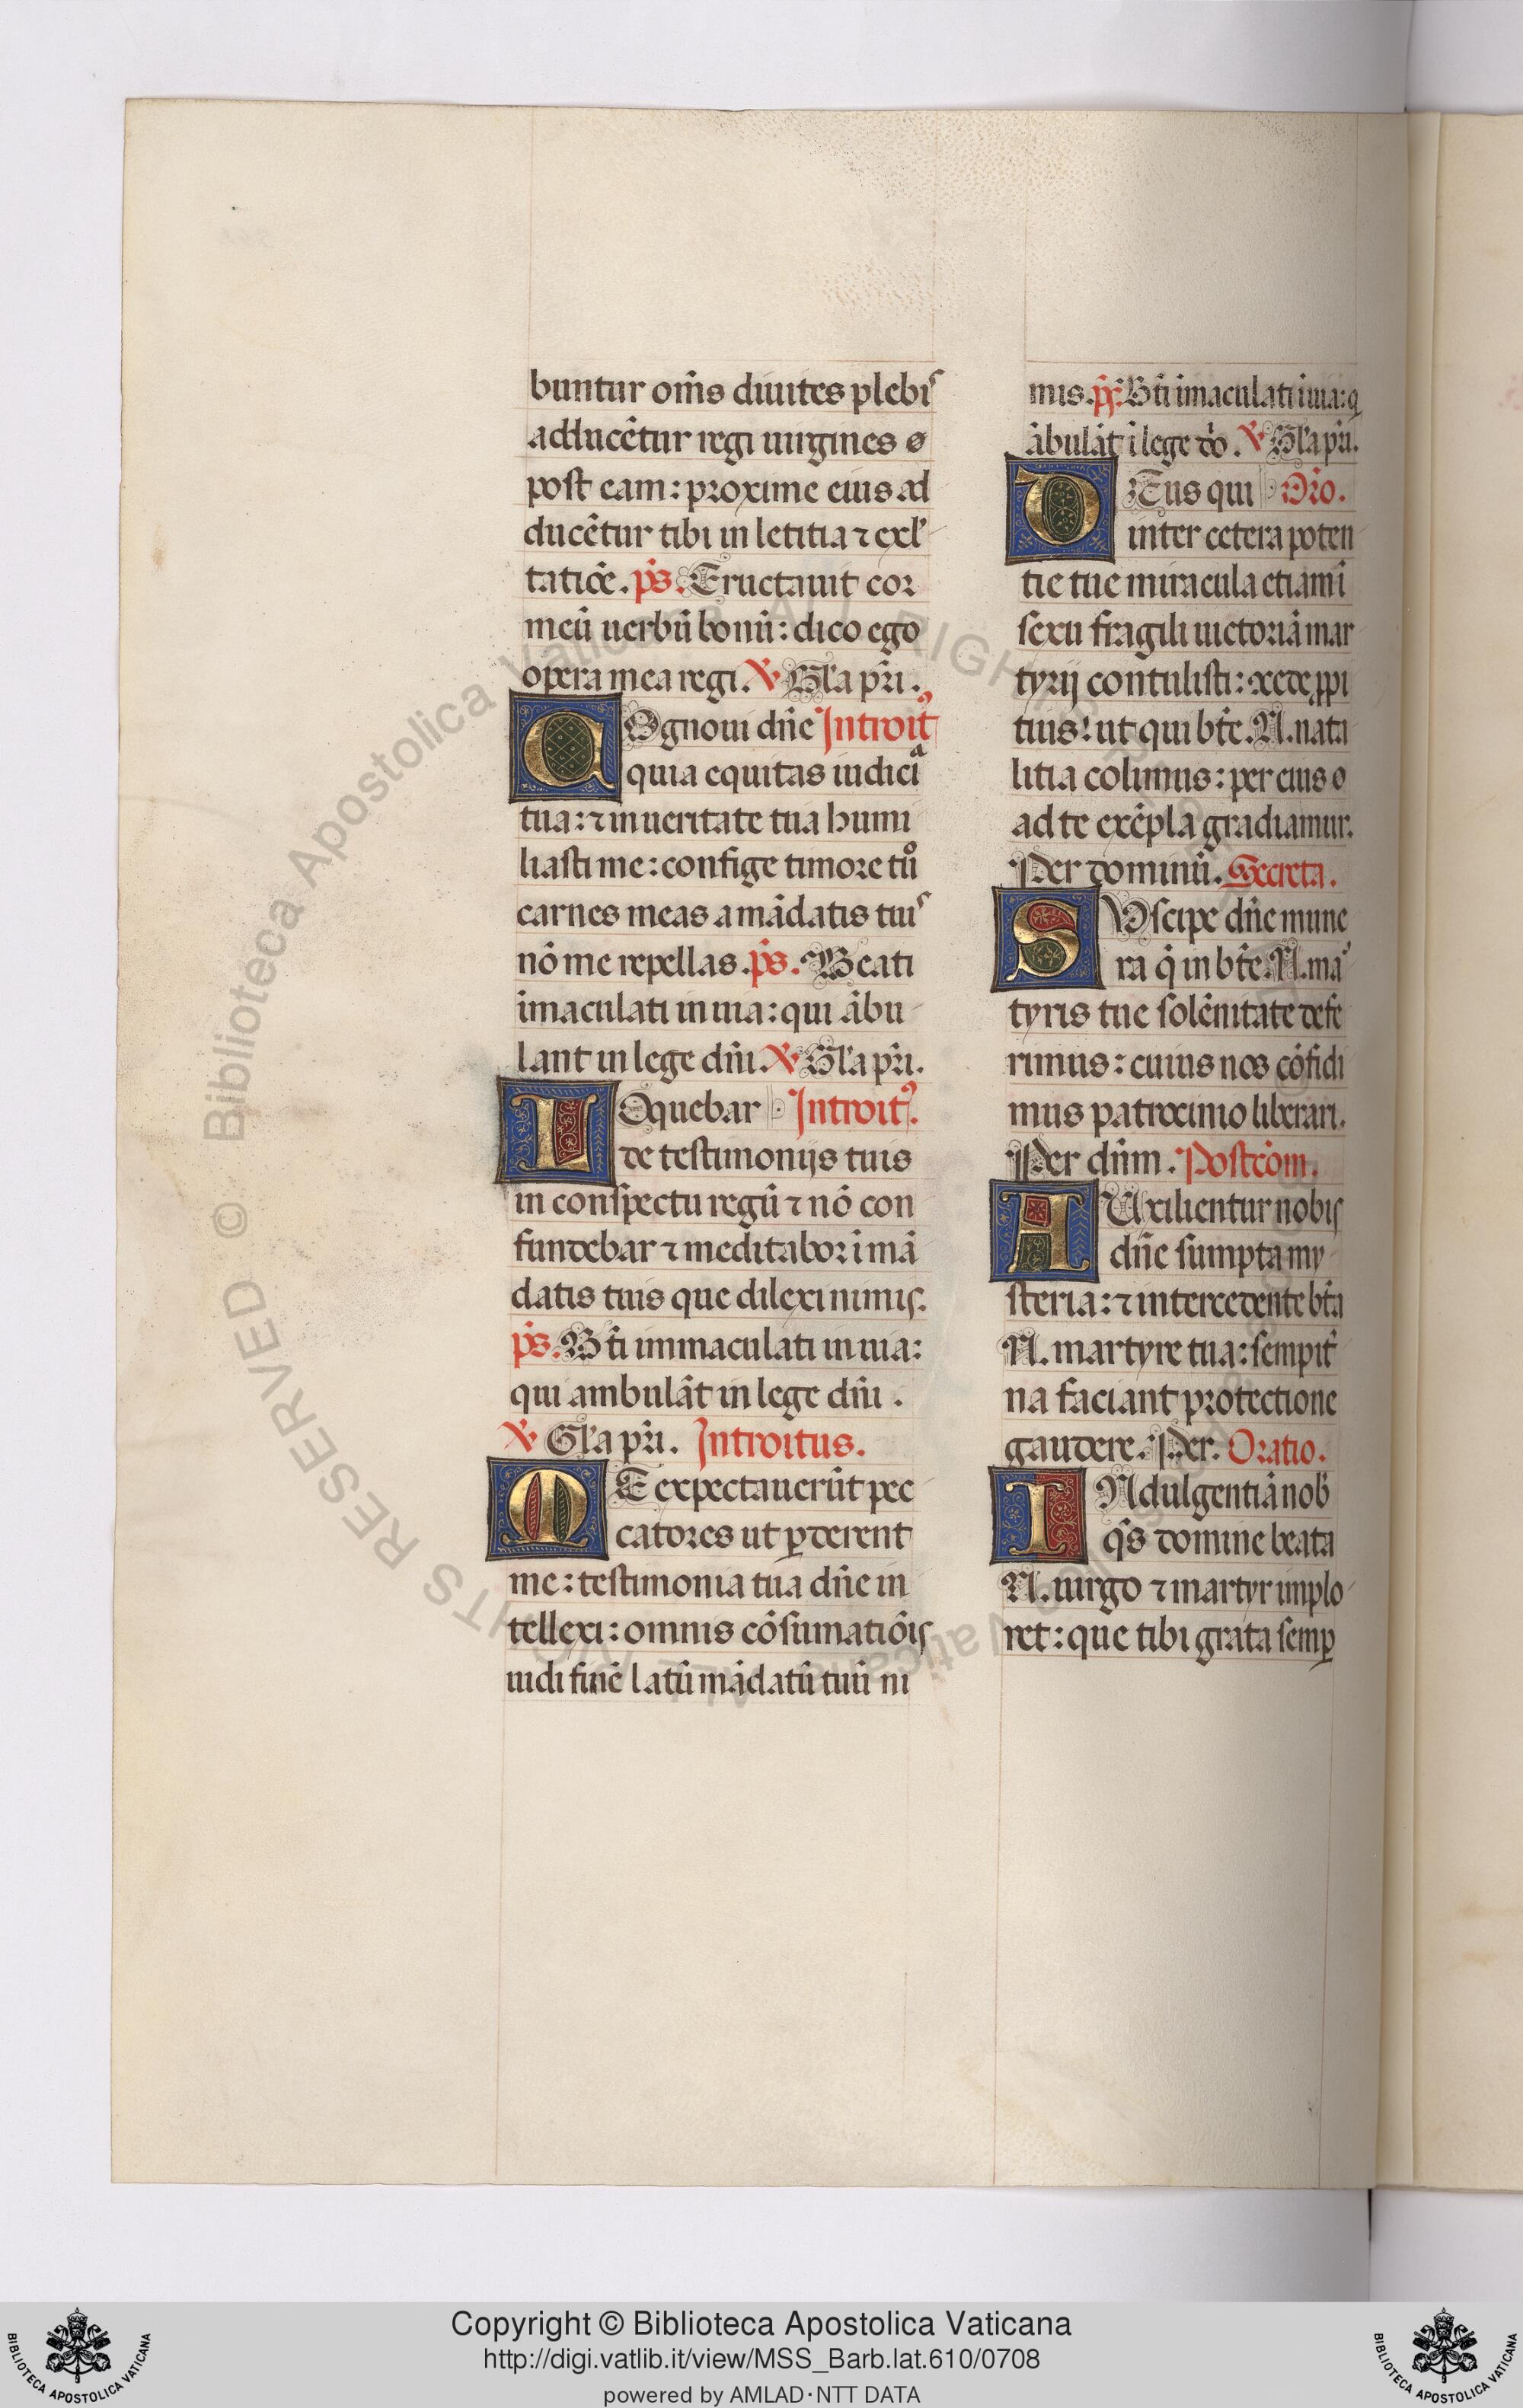 buntur om̄s diuites plebis
adducētur regi uirgines ø
post eam: proxime eius ad
ducētur tibi in letitia ⁊ exl'
tatiōe. ps̄. Eructauit cor
meū uerbū bonū: dico ego
opera mea regi. ℣ Gl'a pr̄i.
COgnoui dn̄e Introit9
quia equitas iudicia
tua: ⁊ in ueritate tua humi
liasti me: confige timore tuo
carnes meas a mādatis tuis
nō me repellas. ps̄. Beati
īmaculati in uia: qui ābu
lant in lege dn̄i. ℣ Gl'a pr̄i.
LOquebar Introit9.
de testimonijs tuis
in conspectu regū ⁊ nō con
fundebar ⁊ meditabor ī mā
datis tuis que dilexi nimis.
ps̄. Bt̄i immaculati in uia:
qui ambulāt in lege dn̄i.
℣ Gl'a pr̄i. Introitus.
ME expectauerūt pec
catores ut ꝑderent
me: testimonia tua dn̄e in
tellexi: omnis cōsumatiōis
uidi finē latū mādatū tuū ni
mis. ps̄. Bt̄i imaculati ī uia: q
ābulāt ī lege dn̄i. ℣ Gl'a pr̄i.
DEus qui Or̄o.
inter cetera poten
tie tue miracula etiam ī
sexu fragili uictoriā mar
tyrij contulisti: ꝓpi
tius: ut qui bt̄e. N. nata
litia colimus: per eius
ad te exēpla gradiamur.
Per dominū. Secreta.
SUscipe dn̄e mune
ra q̄ in bt̄e. N. mar
tyris tue solēnitate defe
rimus: cuius nos cōfidi
mus patrocinio liberari.
Per dn̄m. Postcōm.
AUxilientur nobis
dn̄e sumpta my
steria: ⁊ intercedente bt̄a
N. martyre tua: sempit̄
na faciant protectione
gaudere. Per. Oratio.
INdulgentiā nob
q̄s domine beata
N. uirgo ⁊ martyr implo
ret: que tibi grata semꝑ
Biblioteca Apostolica Vaticana ALL RIGHTS RESERVED ©
Copyright © Biblioteca Apostolica Vaticana
http://digi.vatlib.it/view/MSS_Barb.lat.610/0708
powered by AMLAD·NTT DATA
BIBLIOTECA APOSTOLICA VATICANA
BIBLIOTECA APOSTOLICA VATICANA